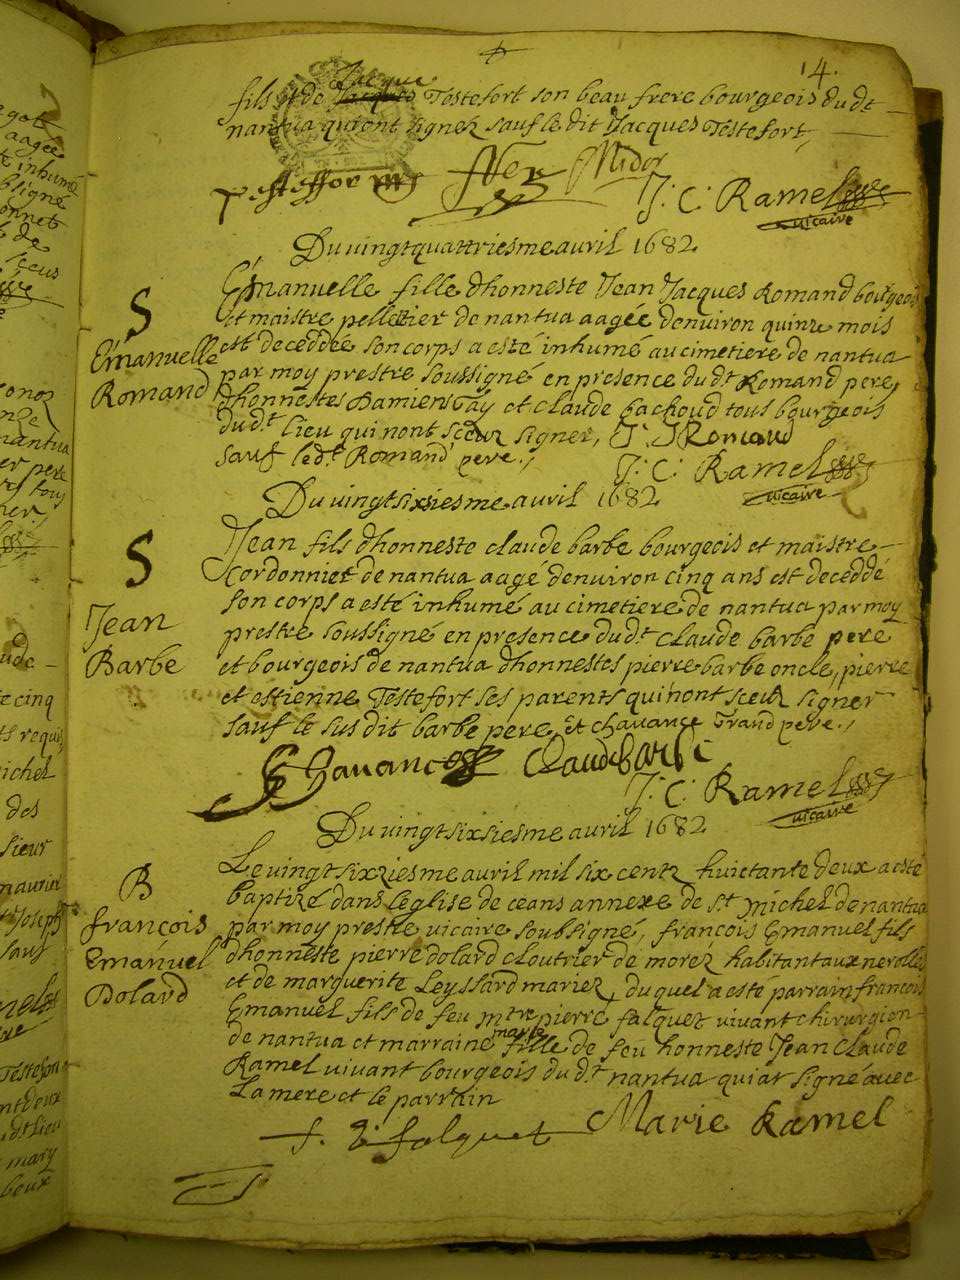 14.
fils et de Jacque Testefort son beau frere bourgeois du dt
nantua qui ont signez sauf le dit Jacques Testefort
J: C: Ramel
vicaire
Du vingtquattriesme avril 1682
S
Emanuelle
Romand
Emanuelle fille dhonneste Jean Jacques Romand bourgeois
et maistre pelletier de nantua aagée denviron quinze mois
est deceddée son corps a esté inhumé au cimetiere de nantua
par moy prestre soussigné en presence du dt Romand pere,
dhonnestes Damien Gay et claude bachoud tous bourgeois
du dt lieu qui nont sceur signer, J. J Romand
sauf le dt Romand pere.
J: C: Ramel
vicaire
Du vingtsixsiesme avril 1682
S
Jean
Barbe
Jean fils dhonneste claude barbe bourgeois et maistre
Cordonnier de nantua aagé denviron cinq ans est deceddé
son corps a esté inhumé au cimetiere de nantua par moy
prestre soussigné en presence du dt claude barbe pere
et bourgeois de nantua dhonnestes pierre barbe oncle, pierre
et estienne Testefort ses parents qui nont sceur signer
sauf le sus dit barbe pere et chavance grand pere.
Chavance Claude barbe
J: C: Ramel
vicaire
Du vingtsixsiesme avril 1682
B
françois
Emanuel
Dolard
Le vingtsixziesme avril mil six centz huictante deux a esté
baptizé dans Leglise de ceans annexe de st michel de nantua
par moy prestre vicaire soubsigné, françois Emanuel fils
dhonneste pierre dolard cloutrier de morez habitant aux nerolles
et de marguerite Leyssard mariez, duquel a este parrain françois
Emanuel fils de feu mtre pierre falquet vivant chirurgien
de nantua et marraine marie fille de feu honneste Jean Claude
Ramel vivant bourgeois du dt nantua qui at signé avec
La mere et le parrain
f. E. falquet Marie Ramel